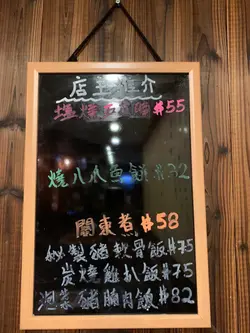 店主推介
塩燒 $55
燒八爪魚餅 $32
關東煮 $58
秘製豬軟骨飯 $75
炭燒雞扒飯 $75
泡菜豬腩肉飯 $82